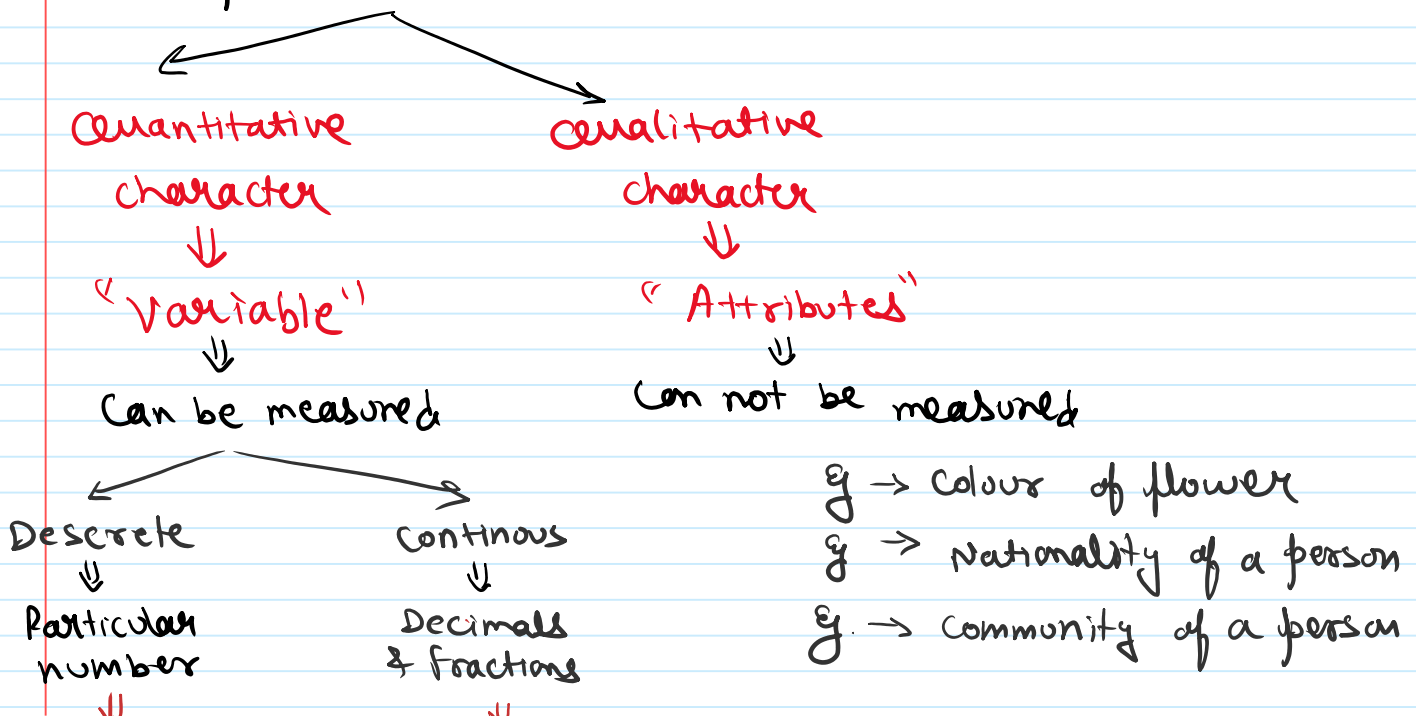 Quantitative
character
"Variable"
Can be measured
Descrete
Particular
number
Continous
Decimals
& fractions
Qualitative
character
"Attributes"
Can not be measured
Eg → Colour of flower
Eg → Nationality of a person
Eg. → Community of a person